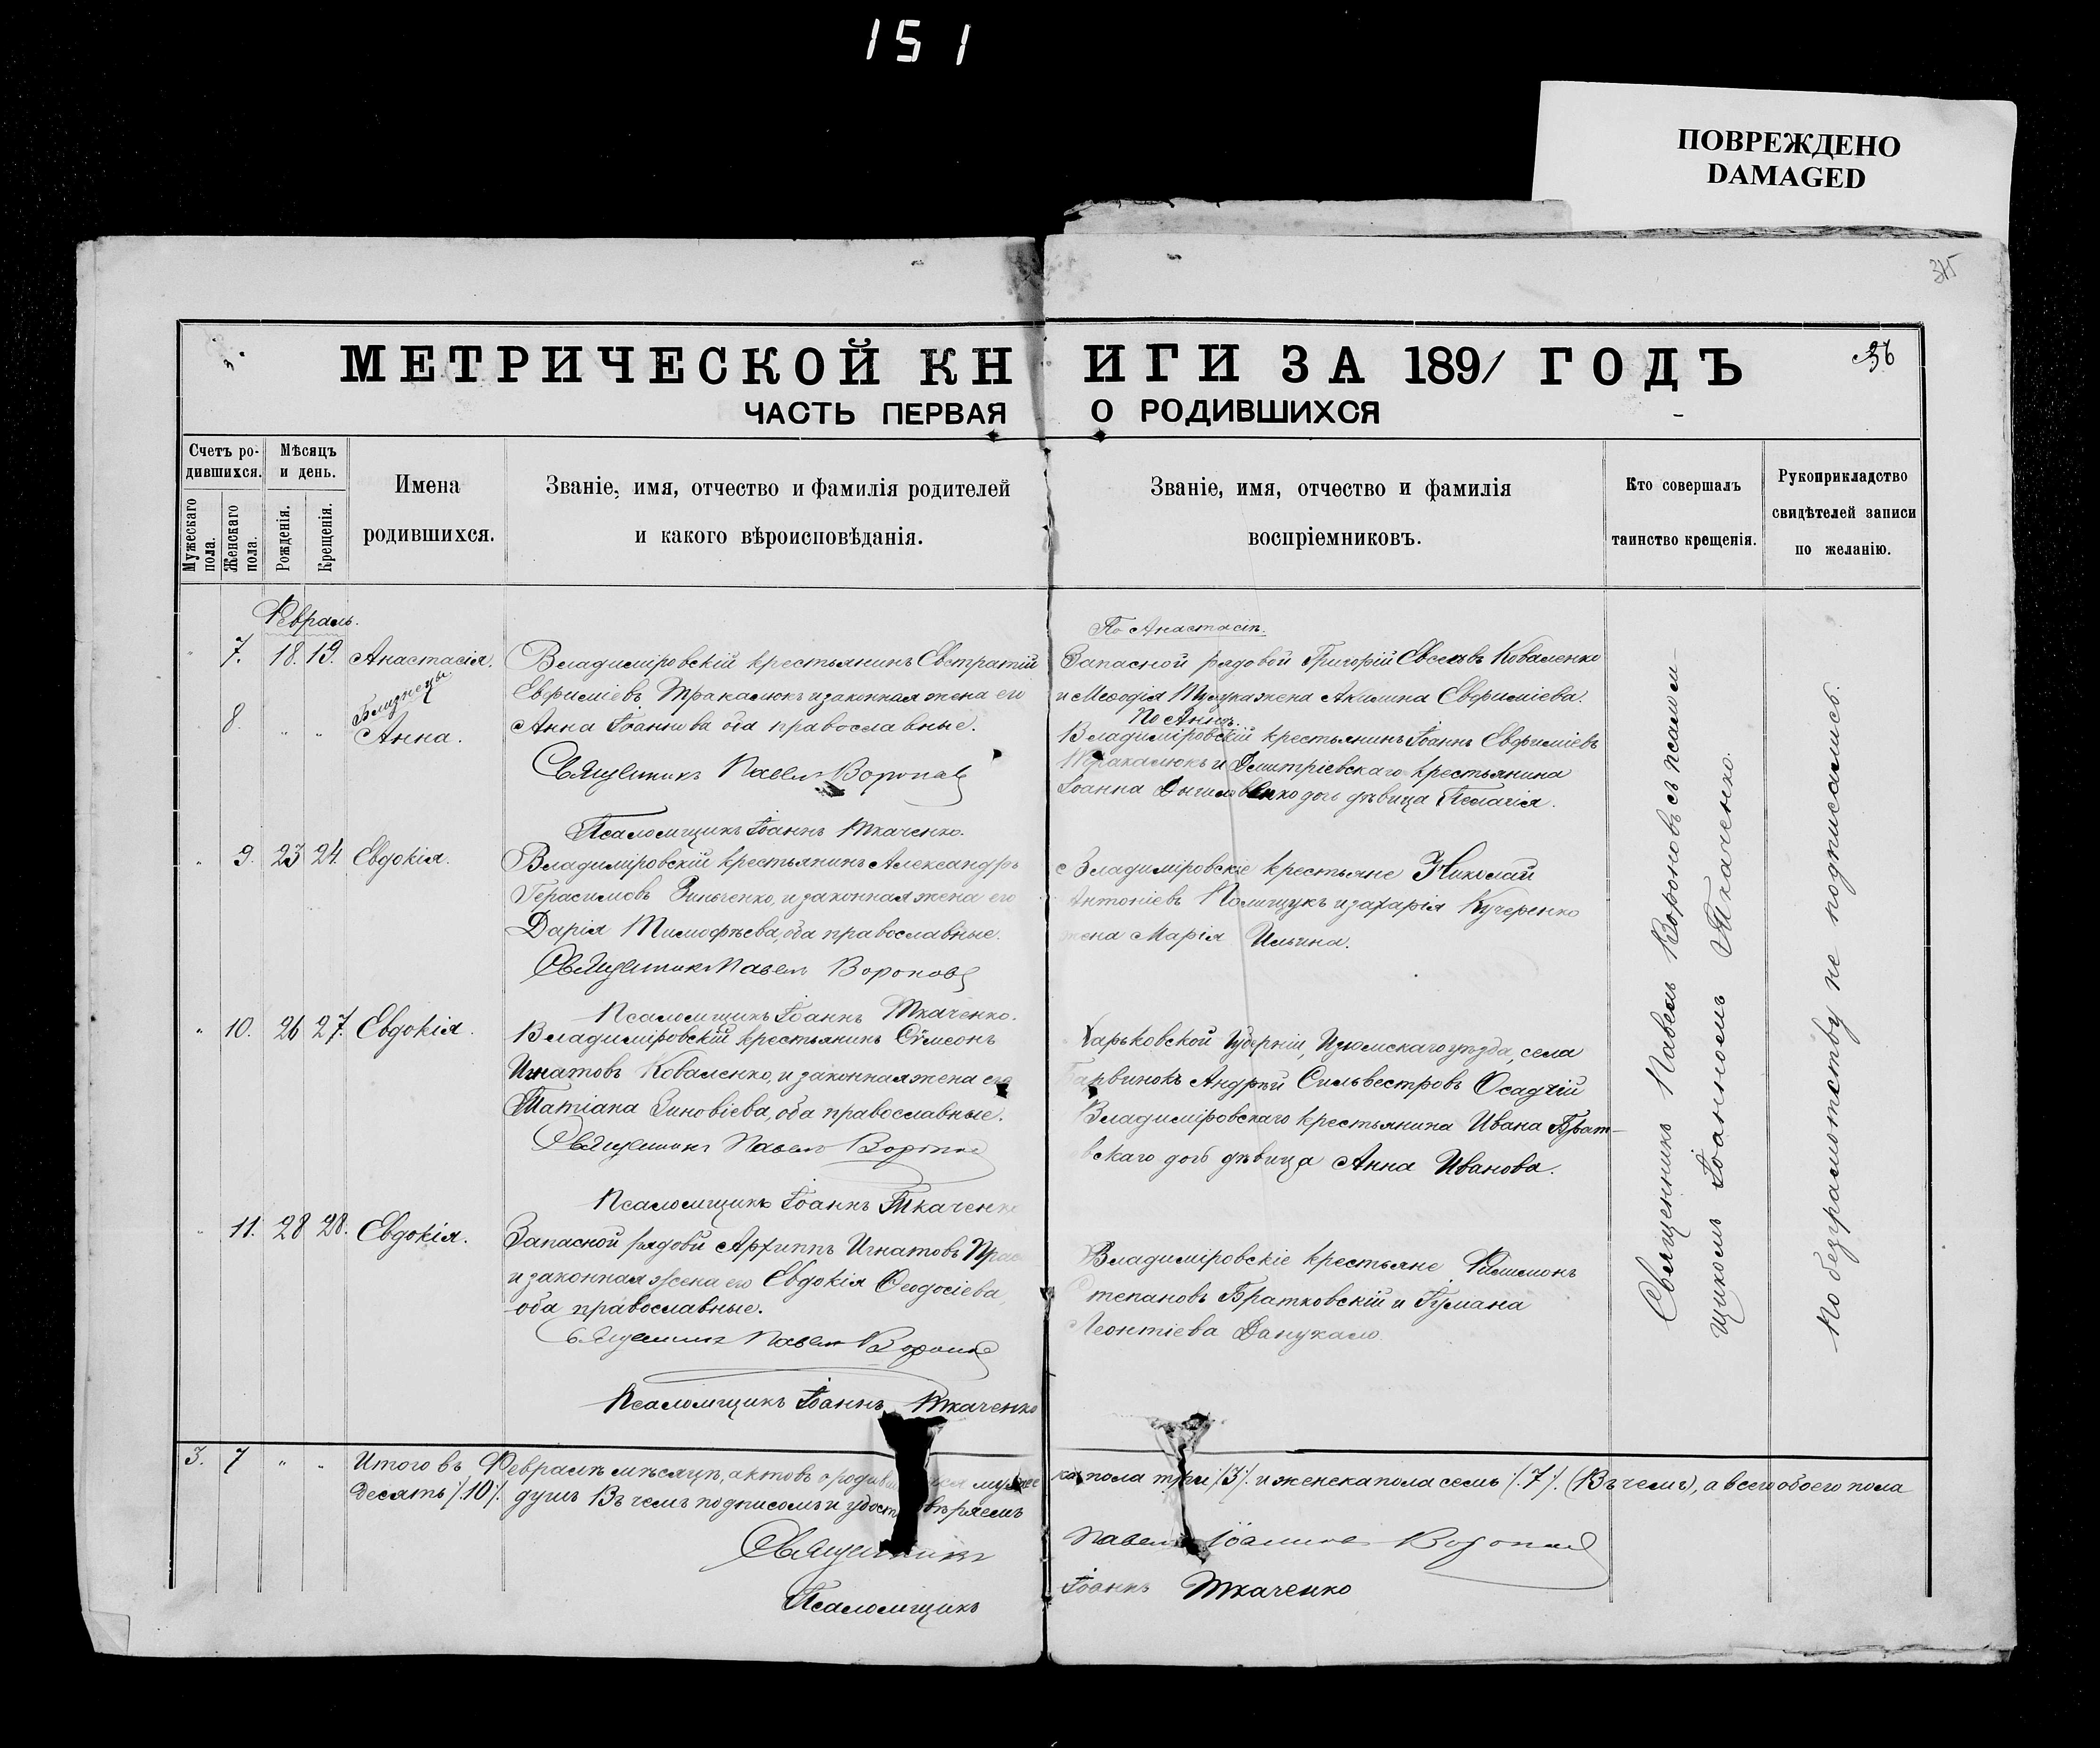 151
ПОВРЕЖДЕНО
DAMAGED
315
МЕТРИЧЕСКОЙ КНИГИ ЗА 1891 ГОДЪ
36
ЧАСТЬ ПЕРВАЯ О РОДИВШИХСЯ
Счетъ ро-
дившихся.
Мужескаго
пола.
Женскаго
пола.
Мѣсяцъ
и день.
Рожденія.
Крещенія.
Имена
родившихся.
Званіе, имя, отчество и фамилія родителей
и какого вѣроисповѣданія.
Званіе, имя, отчество и фамилія
воспріемниковъ.
Кто совершалъ
таинство крещенія.
Рукоприкладство
свидѣтелей записи
по желанію.
Февраль.
7. 18. 19. Анастасія.
Близнецы
8. " " Анна.
Владиміровскій крестьянинъ Евстратій
Евфиміевъ Тракалюкъ и законная жена его
Анна Іоаннова оба православные.
Священникъ Павелъ Вороновъ
Псаломщикъ Іоаннъ Ткаченко.
По Анастасіи.
Запасной рядовой Григорій Коваленко
и Меѳодія жена Акилина Евфиміева.
По Аннѣ.
Владиміровскій крестьянинъ Іоаннъ Евфиміевъ
Тракалюкъ и Димитріевскаго крестьянина
Іоанна дочь дѣвица Пелагія.
" 9. 23 24. Евдокія.
Владиміровскій крестьянинъ Александръ
Герасимовъ Зинченко, и законная жена его
Дарія Тимофѣева, оба православные.
Священникъ Павелъ Вороновъ
Псаломщикъ Іоаннъ Ткаченко.
Владиміровскіе крестьяне Николай
Антоніевъ Полищукъ и Захарія Кучеренко
жена Марія Ильина.
" 10. 26 27. Евдокія.
Владиміровскій крестьянинъ Сѵмеонъ
Игнатовъ Коваленко, и законная жена его
Татіана Зиновіева, оба православные.
Священникъ Павелъ Вороновъ
Псаломщикъ Іоаннъ Ткаченко
Харьковской Губерніи, Изюмскаго уѣзда, села
Барвинокъ Андрѣй Сильвестровъ Осадчій
Владиміровскаго крестьянина Ивана Брат-
вскаго дочь дѣвица Анна Иванова.
" 11. 28 28. Евдокія.
Запасной рядовой Архиппъ Игнатовъ
и законная жена его Евдокія Ѳеодосіева,
оба православные.
Священникъ Павелъ Вороновъ
Псаломщикъ Іоаннъ Ткаченко
Владиміровскіе крестьяне Филимонъ
Степановъ Братковскій и
Леонтіева
Священникъ Павелъ Вороновъ съ псалом-
щикомъ Іоанномъ Ткаченко.
По безграмотству не подписались.
3. 7 " " Итого въ Февралѣ мѣсяцѣ, актовъ о родившихся мужеска пола три /.3/. и женска пола семь /.7/. (Въ чемъ), а всего обоего пола
десять /.10/. душъ Въ чемъ подписомъ и удостовѣряемъ
Священникъ Павелъ Іоанновъ Вороновъ
Псаломщикъ Іоаннъ Ткаченко